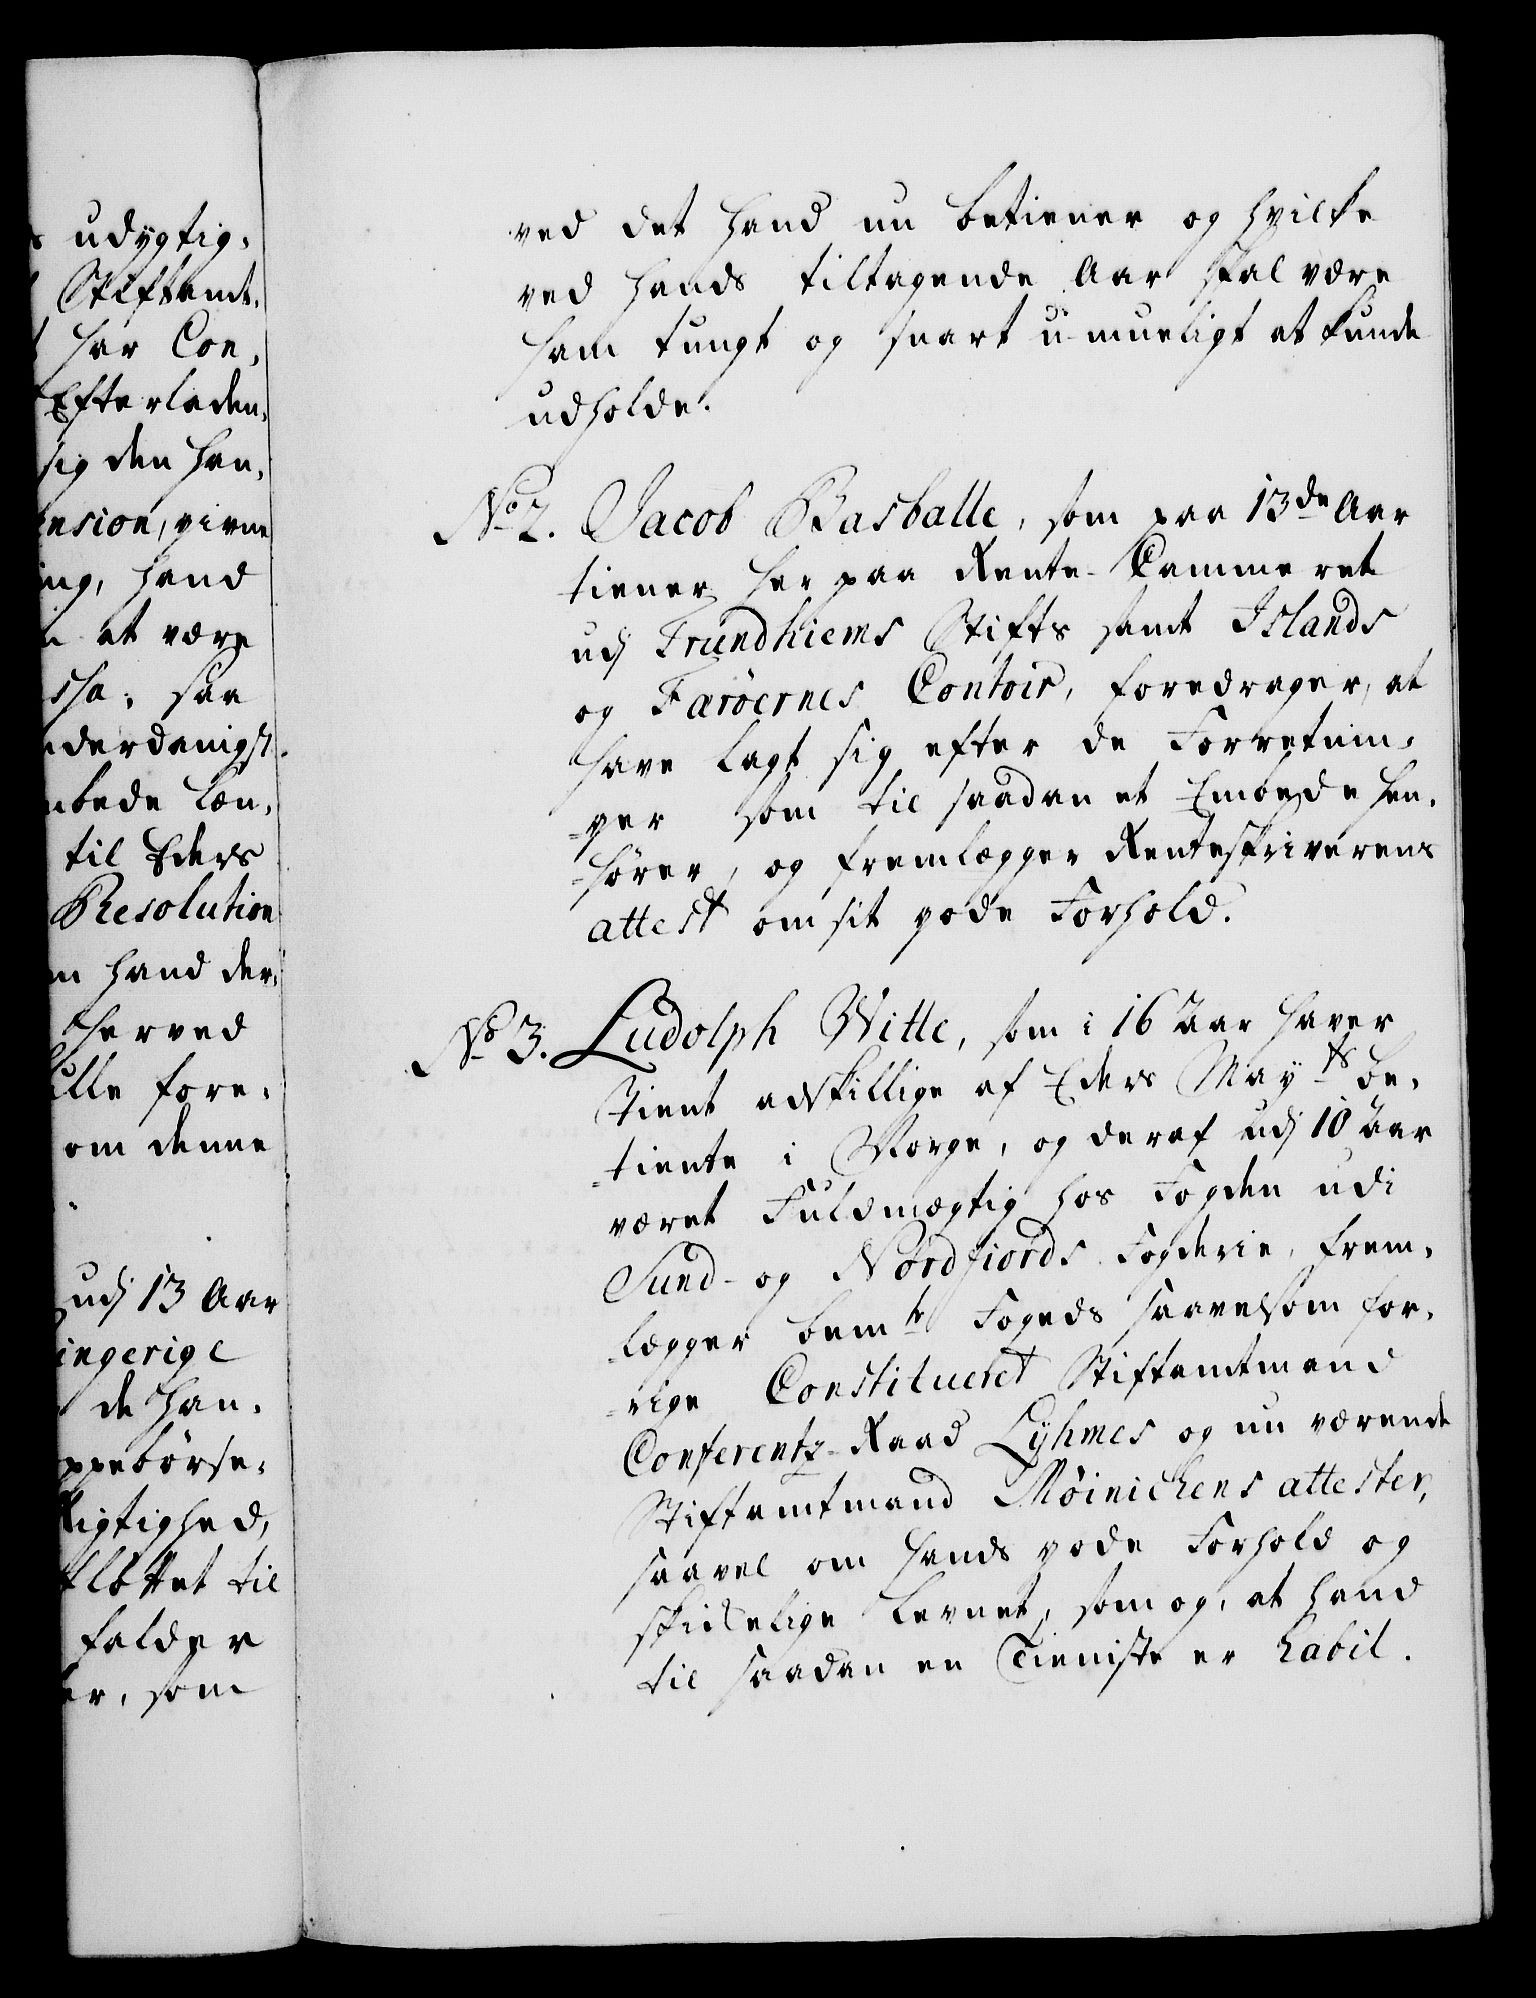 udygtig,
Stiftamt,
har Con,
Efterladen,
sig den han,
ension, givne
ing, hand
at være
sha, saa
nderdanigst
mbede Løn,
til Eders
Resolution
m hand der,
herved
ille fore,
om denne
udj 13 Aar
ingerige
de han,
ppebørse,
rigtighed,
til
falder
er, som
ved det hand nu betiener og hvilke
ved hands tiltagende Aar skal være
ham tungt og snart u-mueligt at kunde
udholde.
No 2. Jacob Basballe, som paa 13de Aar
tiener her paa Rente-Cammeret
udj Trundhiems Stifts samt Islands
og Farøernes Contoir, foredrager, at
have lagt sig efter de Forretnin,
=ger som til saadan et Embede hen,
=hører, og fremlægger Renteskriverens
attest om sit gode Forhold.
No 3. Ludolph Witte, som i 16 Aar haver
tient adskillige af Eders Mayts be,
=tiente i Norge, og deraf udj 10 Aar
været Fuldmægtig hos Fogden udi
Sund- og Nordfiords Fogderie, frem,
=lægger bemte Fogeds saavelsom for,
=rige Constitueret Stiftamtmand
Conferentz-Raad Lyhmes og nu værende
Stiftamtmand Møinichens attester,
saavel om hands gode Forhold og
skickelige levnet, som og, at hand
til saadan en Tieniste er habil.